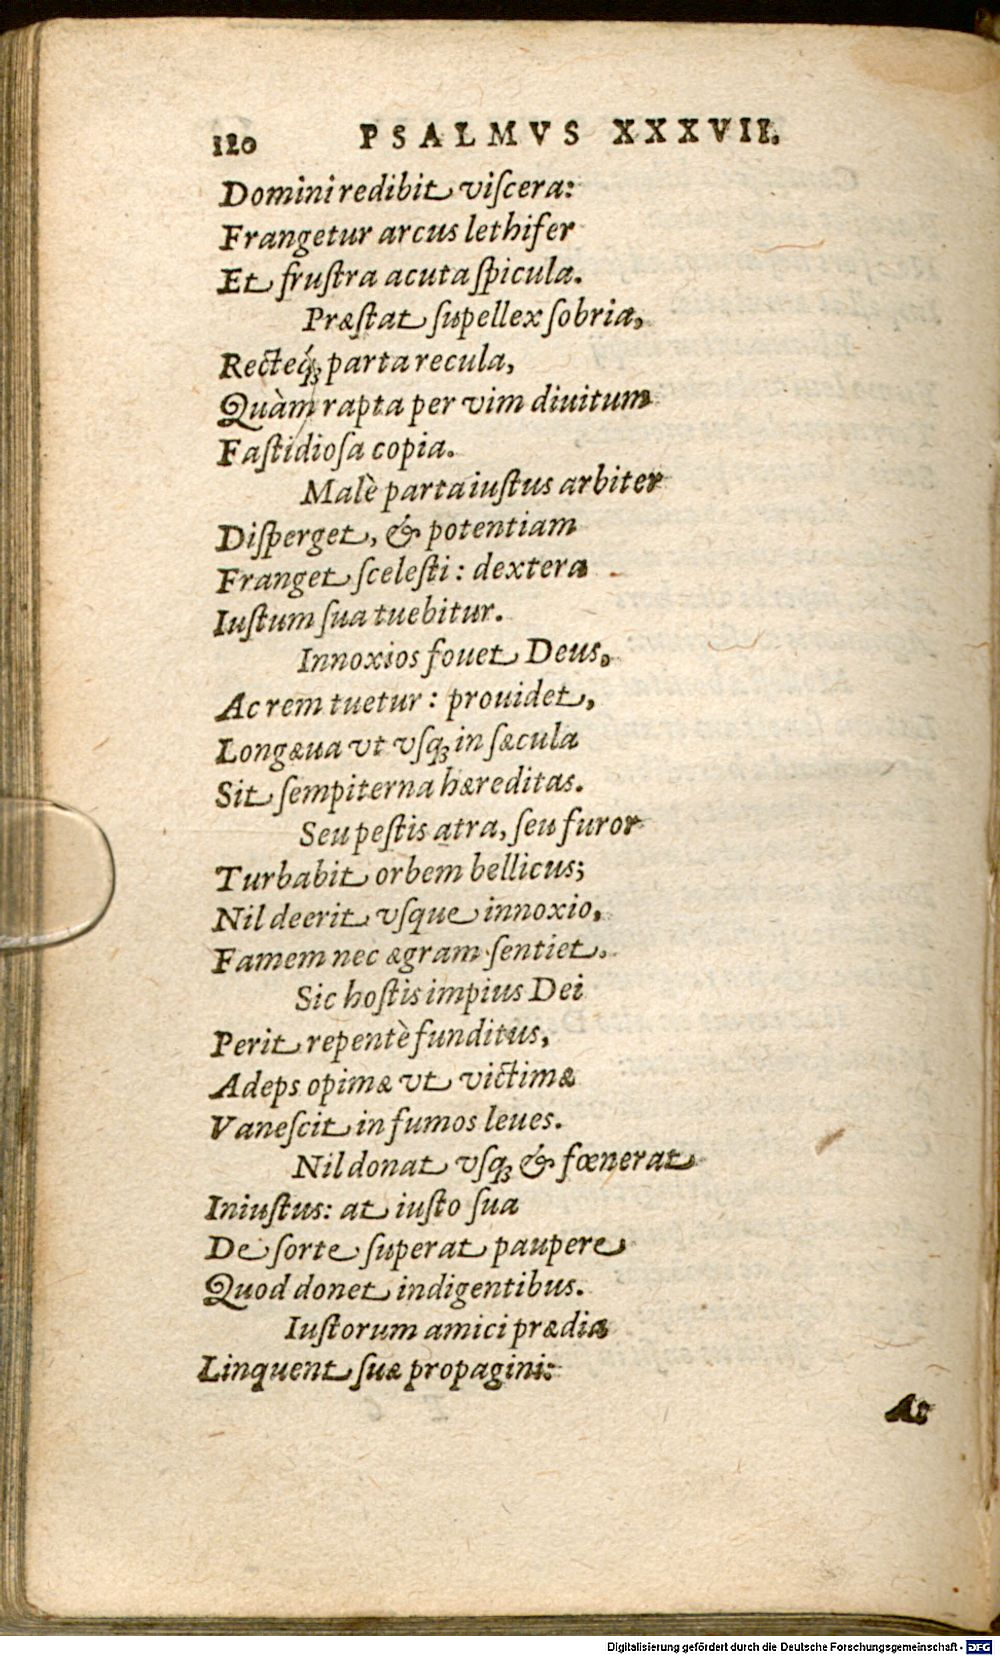 120 PSALMVS XXXVII.
Domini redibit viſcera:
Frangetur arcus lethifer
Et fruſtra acuta ſpicula.
Præſtat ſupellex ſobria,
Recteq́ꝫ parta recula,
Quàm rapta per vim diuitum
Faſtidioſa copia.
Malè parta iuſtus arbiter
Diſperget, & potentiam
Franget ſceleſti: dextera
Iuſtum ſua tuebitur.
Innoxios fouet Deus.
Ac rem tuetur: prouidet,
Longæua vt vſqꝫ in ſæcula
Sit ſempiterna hæreditas.
Seu peſtis atra, ſeu furor
Turbabit orbem bellicus;
Nil deerit vſque innoxio,
Famem nec ægram ſentiet.
Sic hoſtis impius Dei
Perit repentè funditus,
Adeps opimæ vt victimæ
Vaneſcit in fumos leues.
Nil donat vſqꝫ & fœnerat
Iniuſtus: at iuſto ſua
De ſorte ſuperat paupere
Quod donet indigentibus.
Iuſtorum amici prædia
Linquent ſuæ propagini:
At
Digitalisierung gefördert durch die Deutsche Forschungsgemeinschaft - DFG